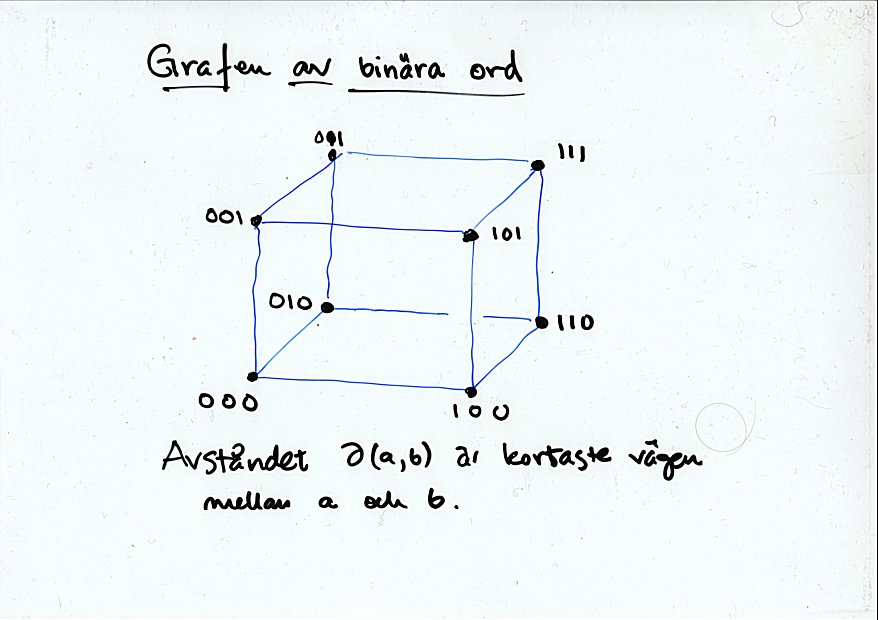 Grafen av binära ord
001 111
001 101
010 110
000 100
Avståndet ∂(a,b) är kortaste vägen
mellan a och b.